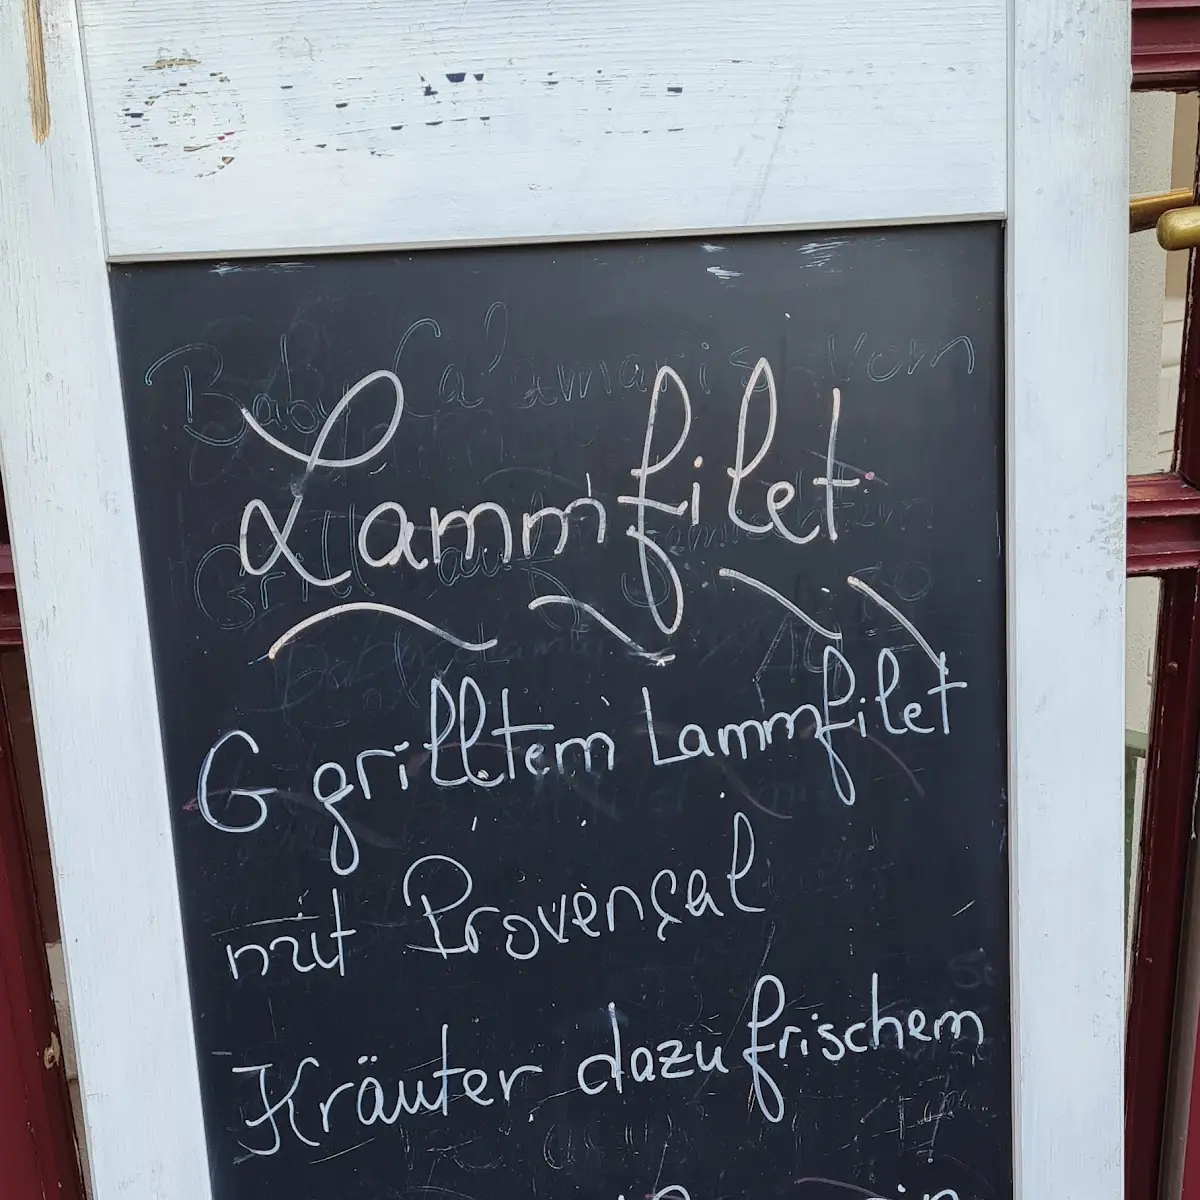 Lammfilet
G grilltem Lammfilet
mit Provençal
Kräuter dazu frischem